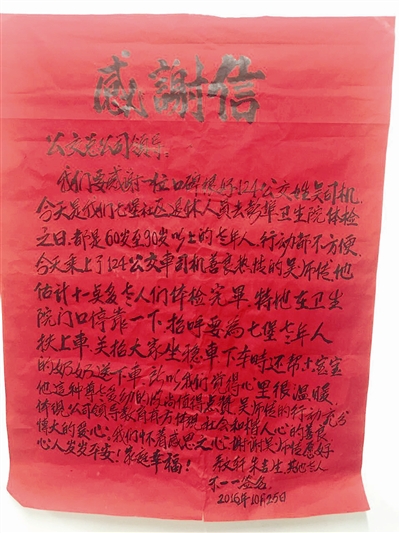 感謝信
公交总公司领导:
我们要感谢一位口碑很好124公交姓吴司机,
今天是我们七堡社区退休人员去彭埠卫生院体检
之日,都是60岁至90岁以上的老年人,行动都不方便,
今天乘上了124公交車司机善良热情的吴师傅,他
估计十点多老人们体检完畢,特地在卫生
院门口停靠一下,招呼要為七堡老年人
扶上車,关招大家坐稳車下车时还帮小宝宝
的奶奶送下車,所以我们觉得心里很温暖
他这种尊老爱幼的风尚值得表赞,吴师傅的行动充分
体现公司领导教育有方体现社会和谐人心的善良
偉大的爱心;我们怀着感恩之心谢谢吴师傅愿好
心人岁岁平安!家庭幸福!
不一一签名
2016年10月25日